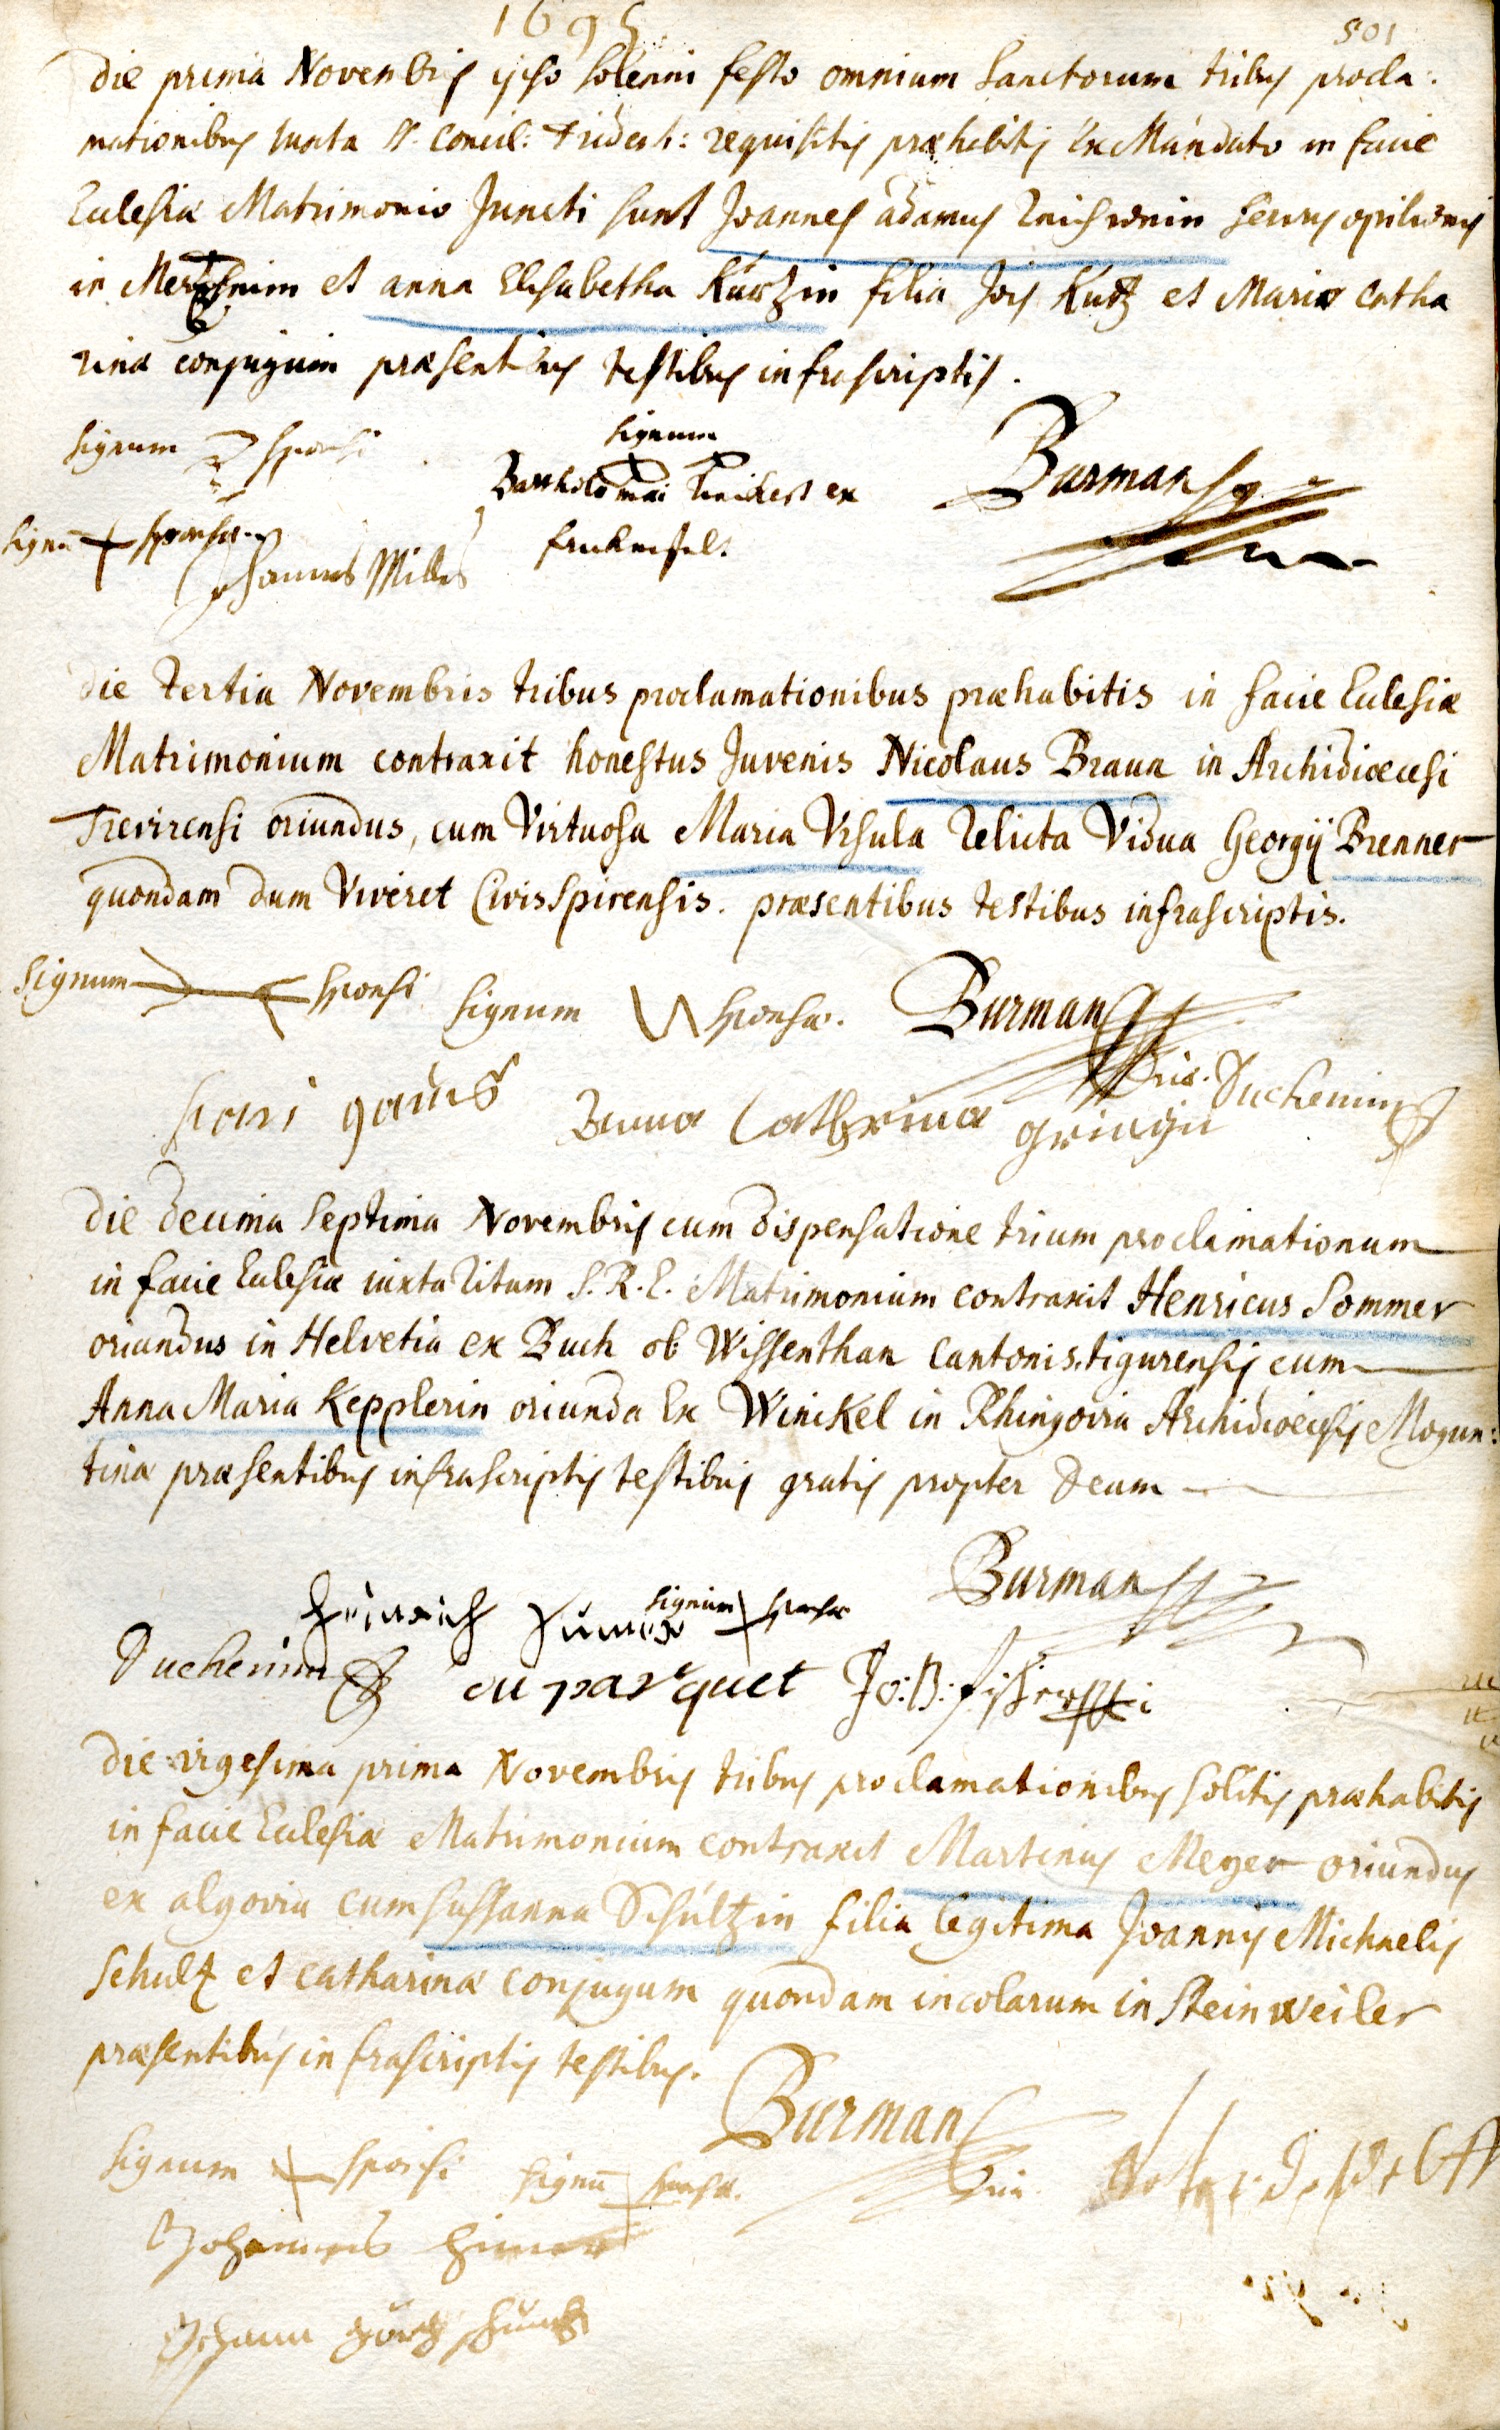 1695
501
Die prima Novembris ipso solenni festo omnium Sanctorum tribus procla:
mationibus iuxta S. Concil: Trident: requisitis præhabitis ex Mandato in facie
Eclesiæ Matrimonio Juncti sunt Joannes adamus servus opilionis
in et anna Elisabetha Kürtzin filia Jois Kutz et Mariæ Catha
rinæ conjugum præsentibus testibus infrascriptis.
signum sponsi
signum
Burman
Bartholomæi ex
signū sponsæ
Johannes Miller
Die tertia Novembris tribus proclamationibus præhabitis in facie Eclesiæ
Matrimonium contraxit honestus Juvenis Nicolaus Braun in Archidiœcesi
Trevirensi oriundus, cum Virtuosa Maria Ursula relicta Vidua Georgij Brenner
quondam dum Viveret Civis Spirensis. præsentibus testibus infrascriptis.
signum sponsi signum sponsæ. Burman
Duchemin
Anna Cathrina
Die decima septima Novembris cum dispensatione trium proclamationum
in facie Eclesiæ iuxta ritum S. R. E. Matrimonium contraxit Henricus Sommer
oriundus in Helvetia ex Buch ob Wissenthan Cantonis tigurensis cum
Anna Maria Kepplerin oriunda Ex Winckel in Rhingovia Archidioecesis Mogun:
tinæ præsentibus infrascriptis testibus gratis propter Deum
Burman
Heinrich signum sponsæ
Duchemin du parquet Jo: B:
Die vigesima prima Novembris tribus proclamationibus solitis præhabitis
in facie Eclesiæ Matrimonium contraxit Martinus Meyer oriundus
ex algovia cum sussanna Schültzin filia legitima Joannis Michaelis
Schultz et catharinæ conjugum quondam incolarum in Steinweiler
præsentibus infrascriptis testibus.
Burman
signum sponsi signū sponsæ.
Johannes
Johann